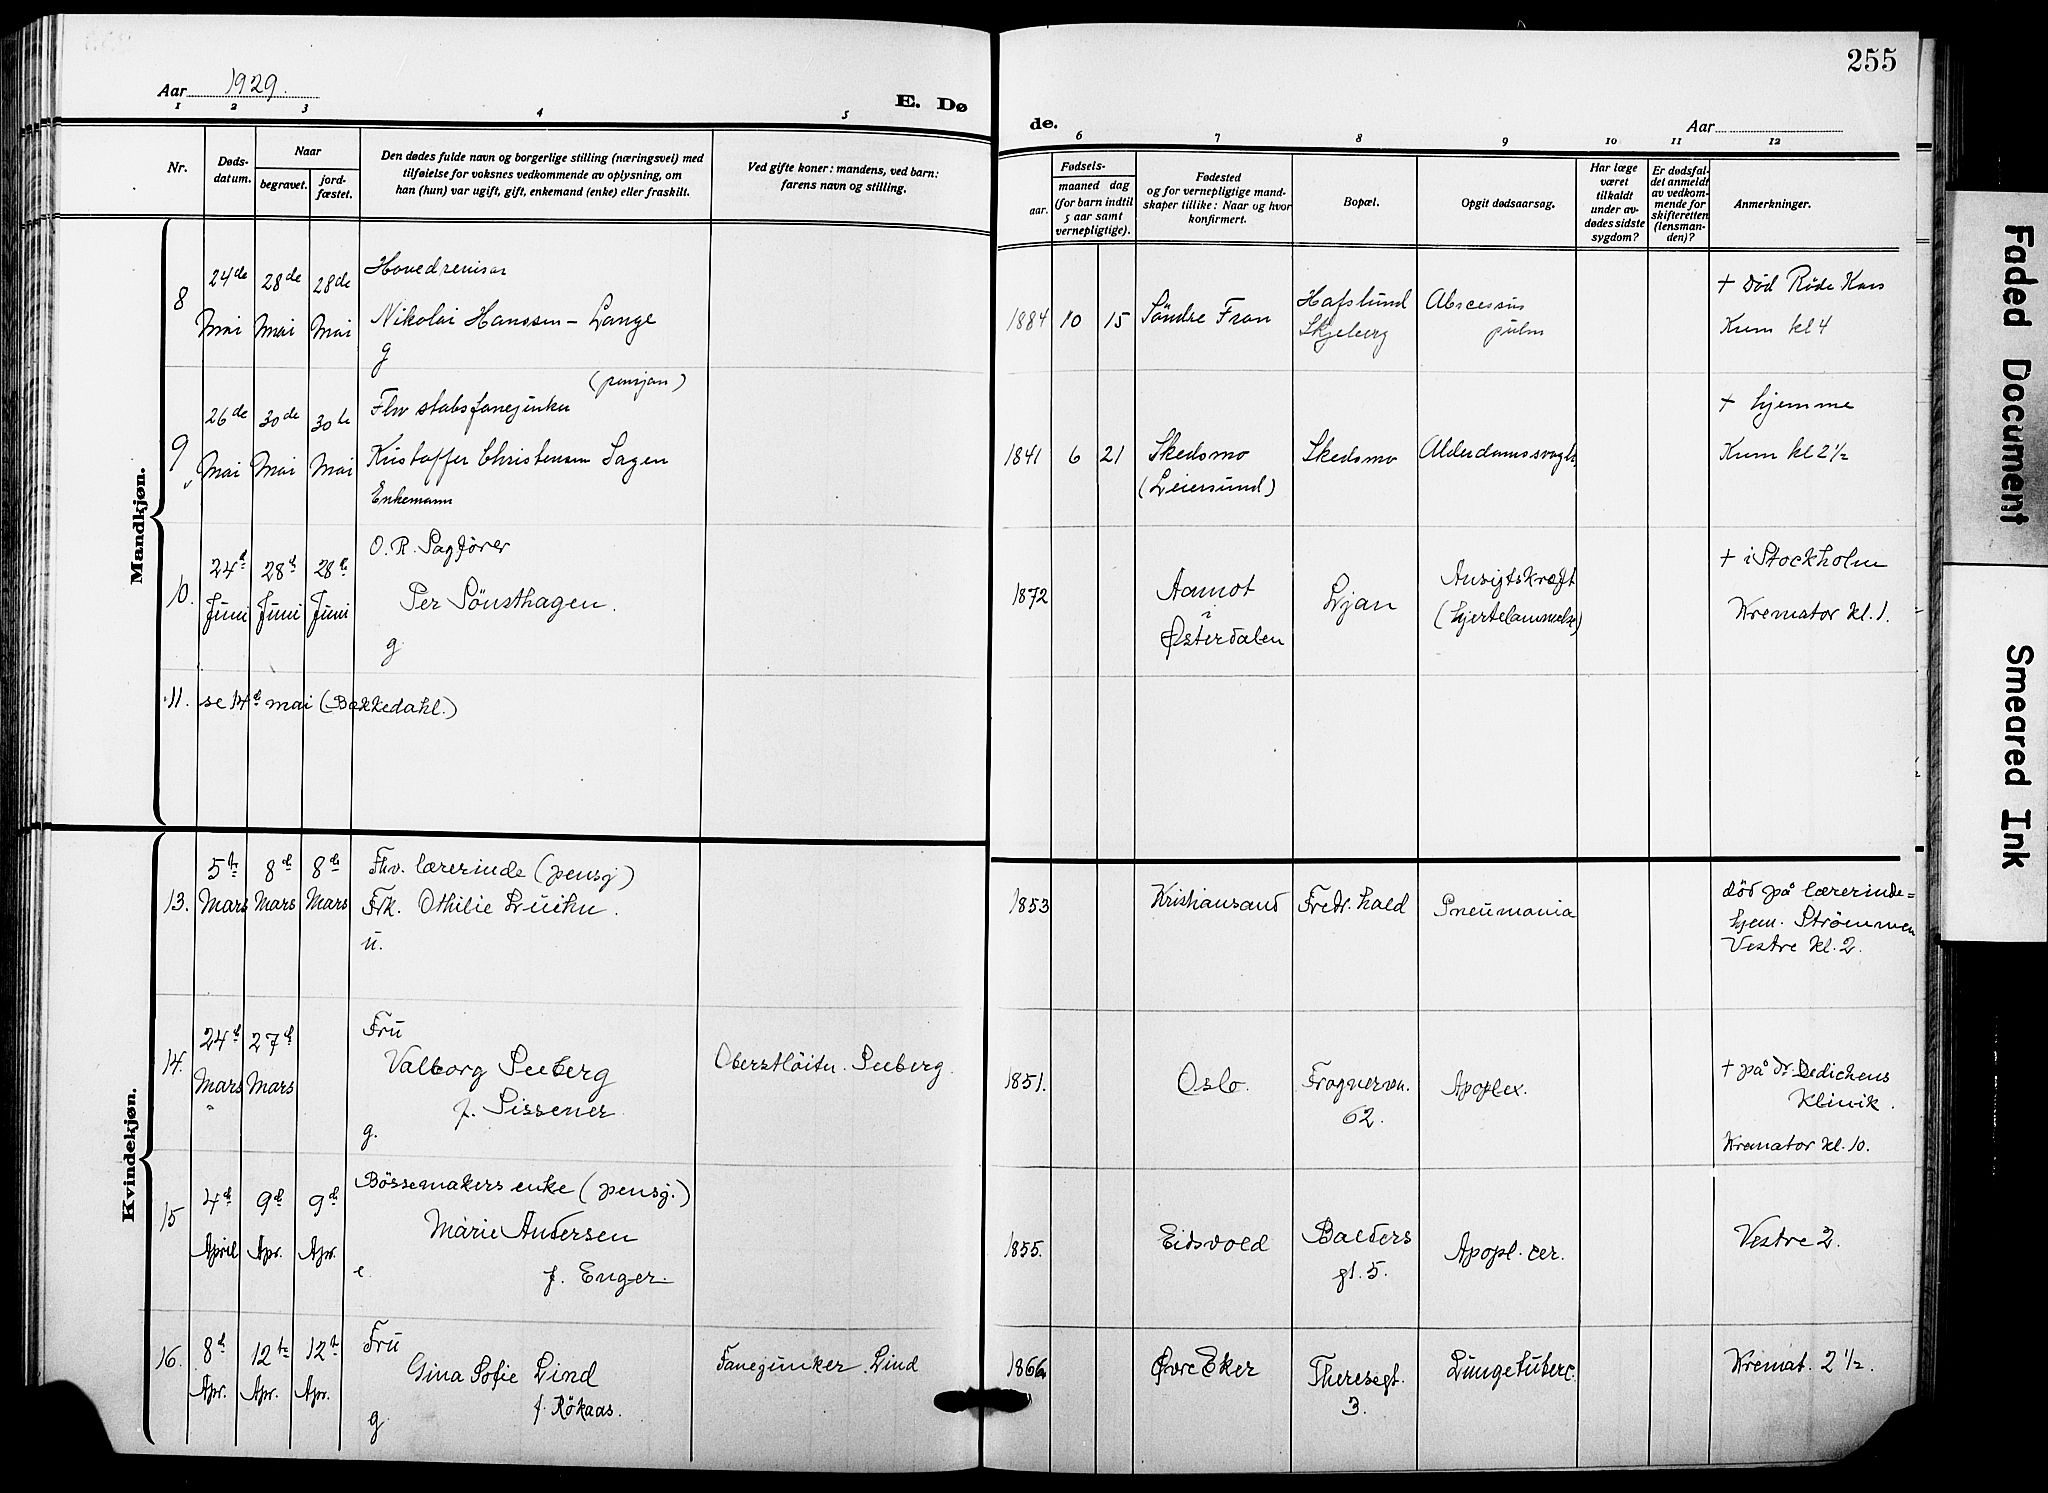 255
Aar 1929.
E. Dø
de.
Aar
1 2 3 4 5
6 7 8 9 10 11 12
Nr.
Døds-
datum.
Naar
begravet.
jord-
fæstet.
Den dødes fulde navn og borgerlige stilling (næringsvei) med
tilføielse for voksnes vedkommende av oplysning, om
han (hun) var ugift, gift, enkemand (enke) eller fraskilt.
Ved gifte koner: mandens, ved barn:
farens navn og stilling.
Fødsels-
aar.
maaned dag
(for barn indtil
5 aar samt
vernepligtige).
Fødested
og for vernepligtige mand-
skaper tillike: Naar og hvor
konfirmert.
Bopæl.
Opgit dødsaarsag.
Har læge
været
tilkaldt
under av-
dødes sidste
sygdom?
Er dødsfal-
det anmeldt
av vedkom-
mende for
skifteretten
(lensman-
den)?
Anmerkninger.
Mandkjøn.
8
24de
Mai
28de
Mai
28de
Mai
Hovedrevisor
Nikolai Hanssen - Lange
g
1884 10 15
Söndre Fron
Hafslund
Skjeberg
Abscessus
pulm
+ Död Röde Kors
Krem kl 4
9
26de
Mai
30de
Mai
30te
Mai
(pensjon)
Fhv stabsfanejunker
Kristoffer Christensen Sagen
Enkemann
1841 6 21
Skedsmo
(Leiersund)
Skedsmo
Alderdomssvagh.
+ hjemme
Krem kl 2½
10.
24d
Juni
28d
Juni
28d
Juni
O. R. Sagfører
Per Sönsthagen.
g
1872
Aamot
i
Østerdalen
Ljan
Ansigtskræft
(hjertelammelse)
+ i Stockholm
Kremator kl. 1.
11. se 14d mai (Bakkedahl.)
Kvindekjøn.
13.
5te
Mars
8d
Mars
8d
Mars
Fhv. lærerinde (pensj)
Frk. Othilie
u.
1853
Kristiansand
Fredr. hald
Pneumonia
död på lærerinde=
hjem. Strömmen
Vestre kl. 2.
14.
24d
Mars
27d
Mars
Fru
Valborg Seeberg
f. Sissener
g.
Oberstlöitn. Seeberg.
1851.
Oslo.
Frognervn.
62.
Apoplex.
+ på dr. Dedichens
Klinik.
Kremator kl. 10.
15
4d
April
9d
Apr.
9d
Apr.
Bössemakers enke (pensj.)
Marie Andersen
e. f. Enger.
1855.
Eidsvold
Balders
gt. 5.
Apopl. cer.
Vestre 2.
16.
8d
Apr.
12te
Apr.
12te
Apr.
Fru
Gina Sofie Lind
f. Rökaas.
g
Fanejunker Lind
1866
Øvre Eker
Theresegt.
3.
Lungetuberc.
Kremat. 2½.
Faded Document
Smeared Ink